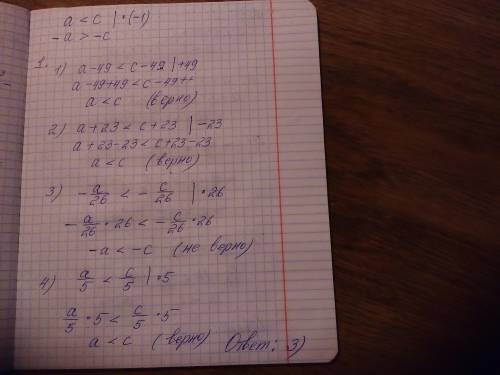 a < c | • (-1)
-a > -c
1. 1) a - 49 < c - 49 | +49
a - 49 + 49 < c - 49 +
a < c (верно)
2) a + 23 < c + 23 | -23
a + 23 - 23 < c + 23 - 23
a < c (верно)
3) -a/26 < -c/26 | • 26
-a/26 • 26 < -c/26 • 26
-a < -c (не верно)
4) a/5 < c/5 | • 5
a/5 • 5 < c/5 • 5
a < c (верно) Ответ: 3)